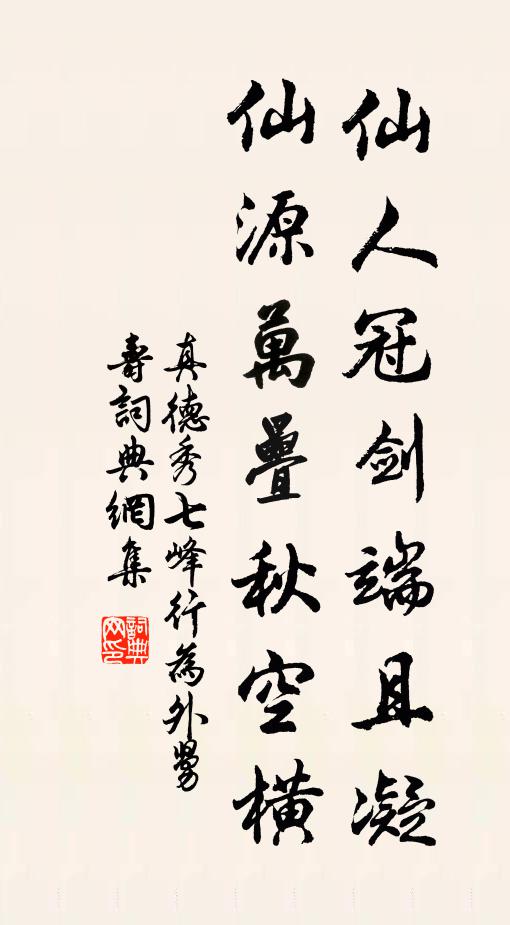 仙人冠剑端且凝
仙源萬疊秋空横
真德秀七峰行為外舅
壽詞典網集
詞典网印